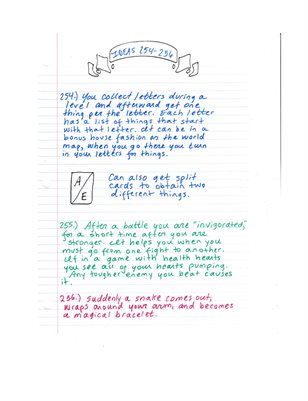 IDEAS 254-256
254.) You collect letters during a
level and afterward get one
thing per the letter. Each letter
has a list of things that start
with that letter. It can be in a
bonus house fashion on the world
map, when you go there you turn
in your letters for things.
A/E
Can also get split
cards to obtain two
different things.
255.) After a battle you are "invigorated,"
for a short time after you are
stronger. It helps you when you
must go from one fight to another.
If in a game with health hearts
you see all of your hearts pumping.
Any tougher enemy you beat causes
it.
256.) Suddenly a snake comes out,
wraps around your arm, and becomes
a magical bracelet.